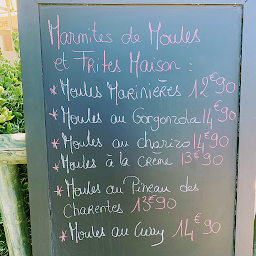 Marmites de Moules
et Frites Maison :
* Moules Marinières 12€90
* Moules au Gorgonzola 14€90
* Moules au chorizo 14€90
* Moules à la crème 13€90
* Moules au Pineau des
Charentes 13€90
* Moules au Curry 14€90